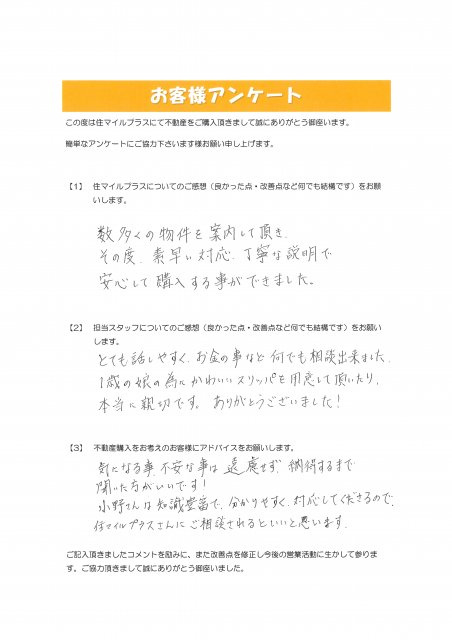 お客様アンケート
この度は住マイルプラスにて不動産をご購入頂きまして誠にありがとう御座います。
簡単なアンケートにご協力下さいます様お願い申し上げます。
【1】 住マイルプラスについてのご感想（良かった点・改善点など何でも結構です）をお願
いします。
数多くの物件を案内して頂き、
その度、素早い対応、丁寧な説明で
安心して購入する事ができました。
【2】 担当スタッフについてのご感想（良かった点・改善点など何でも結構です）をお願い
します。
とても話しやすく、お金の事など何でも相談出来ました。
1歳の娘の為にかわいいスリッパを用意して頂いたり、
本当に親切です。ありがとうございました！
【3】 不動産購入をお考えのお客様にアドバイスをお願いします。
気になる事、不安な事は遠慮せず、納得するまで
聞いた方がいいです！
小野さんは知識豊富で、分かりやすく、対応してくださるので、
住マイルプラスさんにご相談されるといいと思います。
ご記入頂きましたコメントを励みに、また改善点を修正し今後の営業活動に生かして参りま
す。ご協力頂きまして誠にありがとう御座いました。